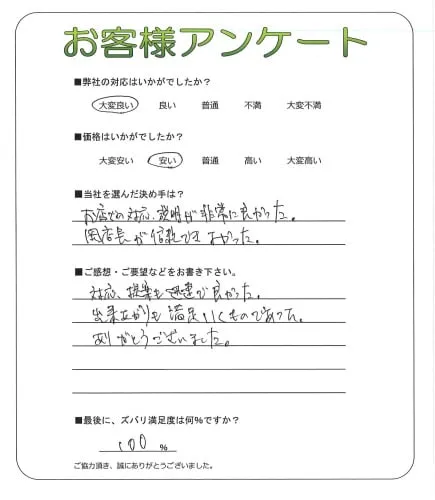 お客様アンケート
■弊社の対応はいかがでしたか?
大変良い 良い 普通 不満 大変不満
■価格はいかがでしたか?
大変安い 安い 普通 高い 大変高い
■当社を選んだ決め手は?
お店での対応、説明が非常に良かった。
岡店長が信頼できそだった。
■ご感想・ご要望などをお書き下さい。
対応、提案も迅速で良かった。
出来上がりも満足いくものであった。
ありがとうございました。
■最後に、ズバリ満足度は何%ですか?
100 %
ご協力頂き、誠にありがとうございました。